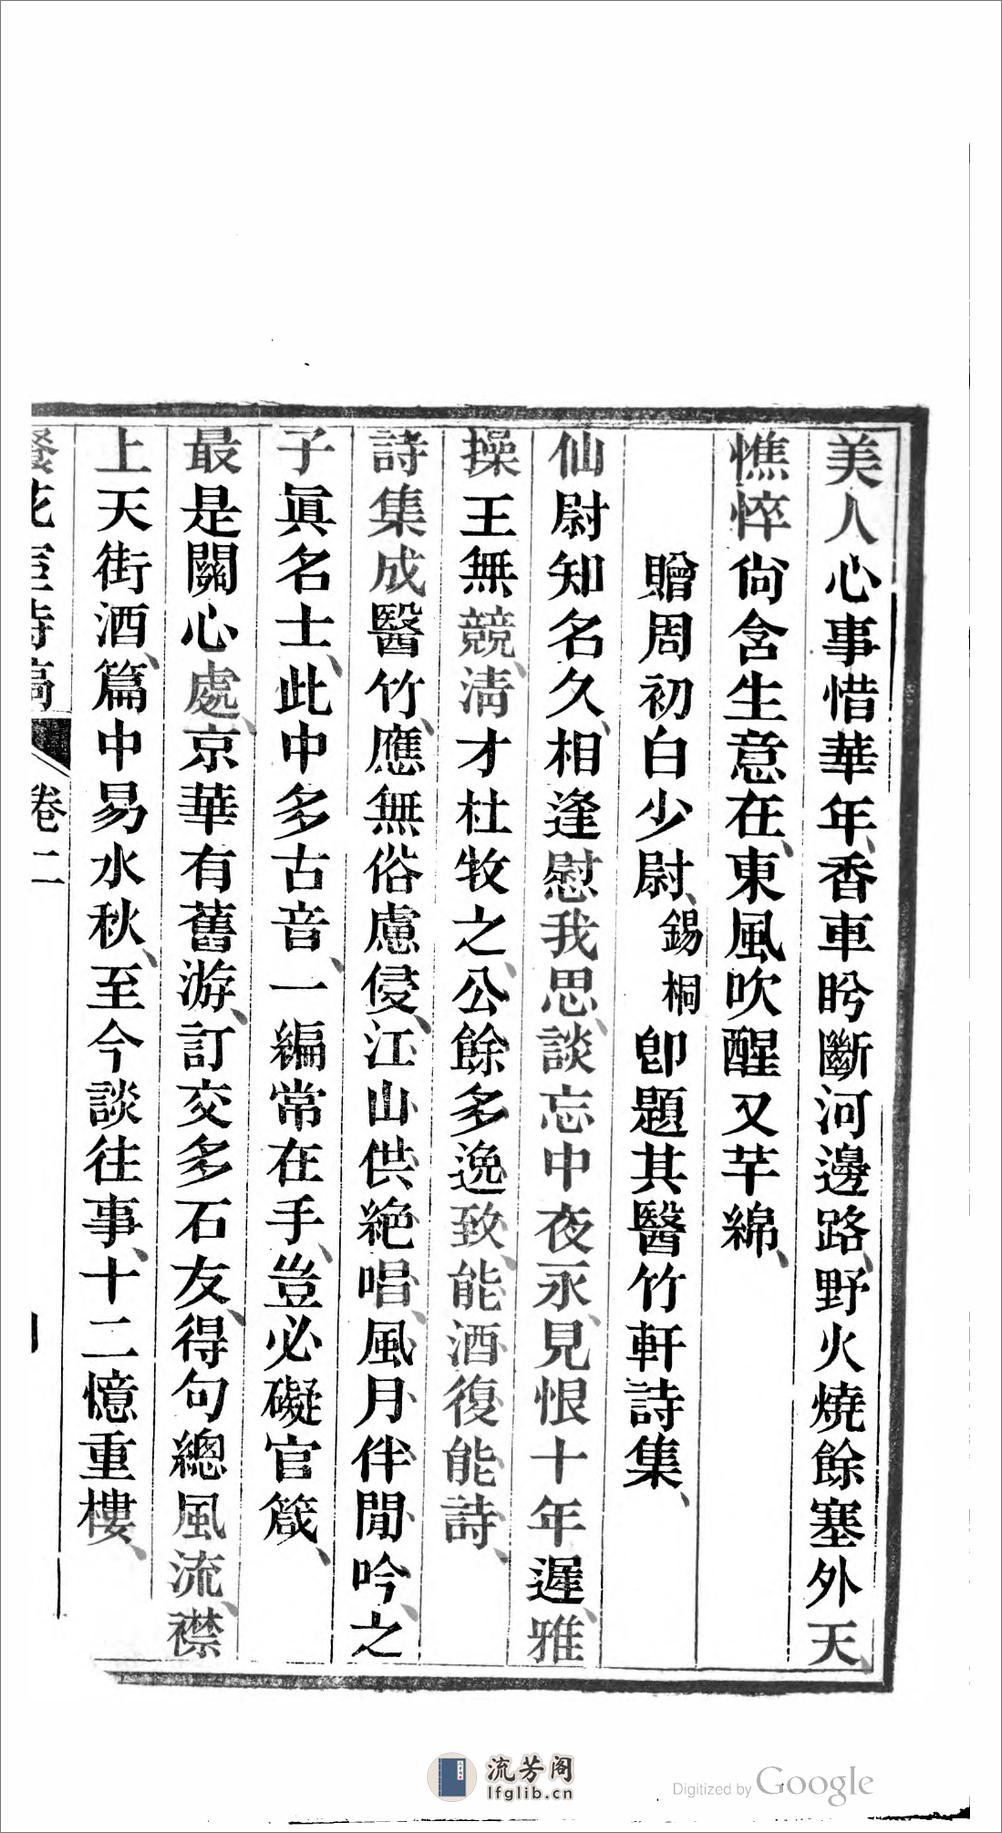 美人心事惜華年、香車盻斷河邊路、野火燒餘塞外天、
憔悴尙含生意在、東風吹醒又芊綿、
贈周初白少尉、錫桐卽題其醫竹軒詩集、
仙尉知名久、相逢慰我思、談忘中夜永、見恨十年遲、雅
操王無競、淸才杜牧之、公餘多逸致、能酒復能詩、
詩集成醫竹、應無俗慮侵、江山供絕唱、風月伴閒吟、之
子眞名士、此中多古音、一編常在手、豈必礙官箴、
最是關心處、京華有舊游、訂交多石友、得句總風流、襟
上天街酒、篇中易水秋、至今談往事、十二憶重樓、
花室詩稿 卷二
流芳阁
lfglib.cn
Digitized by Google